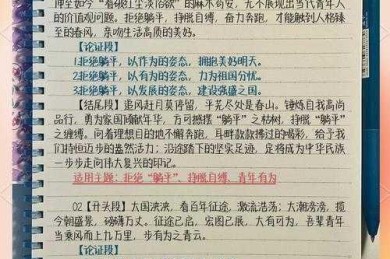 理至如今“看破红尘淡泊欲”的麻木苟安，无不展现出当代青年人
的价值观问题。拒绝躺平，挣脱自缚，奋力奔跑，才能触到人格臻
至的春风，亲吻生活高质的美好。
【论证段】
1.拒绝躺平，以作为的姿态，拥抱美好明天。
2.拒绝躺平，以有为的姿态，力为祖国分忧。
3.拒绝躺平，以发展的姿态，建设强盛之国。
【结尾段】追风赶月莫停留，平芜尽处是春山。锤炼自我高尚
品行，勇为家国倾献年华，方可撼摆“躺平”之枯树，挣脱“躺平”
之缠缚。向着理想目的地不懈奔跑，耳畔款款拂过的喝彩，给予我
们特恒迈步的盎然活力；沿途踏下的坚实足迹，足将成为中华民族
一步步走向伟大复兴的印记。
适用主题：拒绝“躺平”、挣脱自缚、青年有为
02【开头段】大国泱泱，看百年征途，激流浩荡；大潮滂滂，揽
今朝盛景，磅薄万丈。征途已启，宏图已展，大有可为，吾辈青年
当乘风而上九万里，步有为之青云。